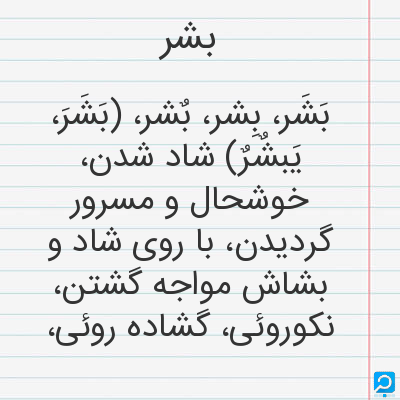 بشر
بَشَر، بِشر، بٌشر، (بَشَرَ،
یَبشٌرٌ) شاد شدن،
خوشحال و مسرور
گردیدن، با روی شاد و
بشاش مواجه گشتن،
نکوروئی، گشاده روئی،